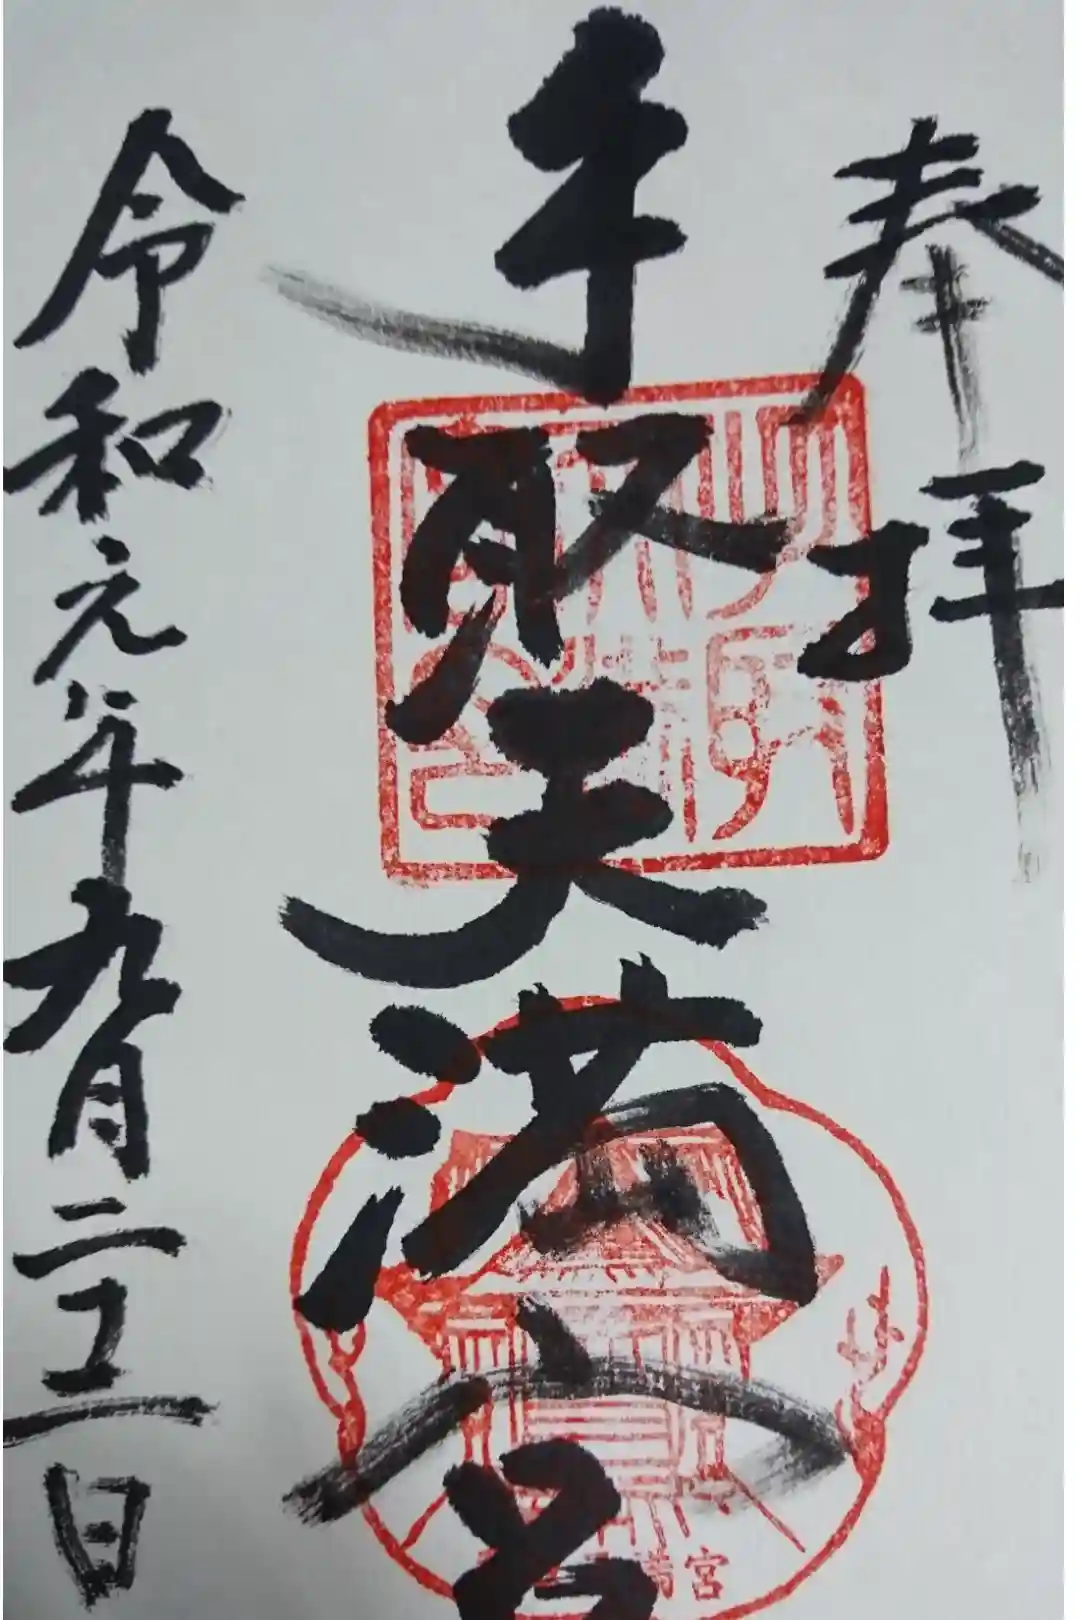 奉拝
手取天満宮
令和元年九月二五日
満宮